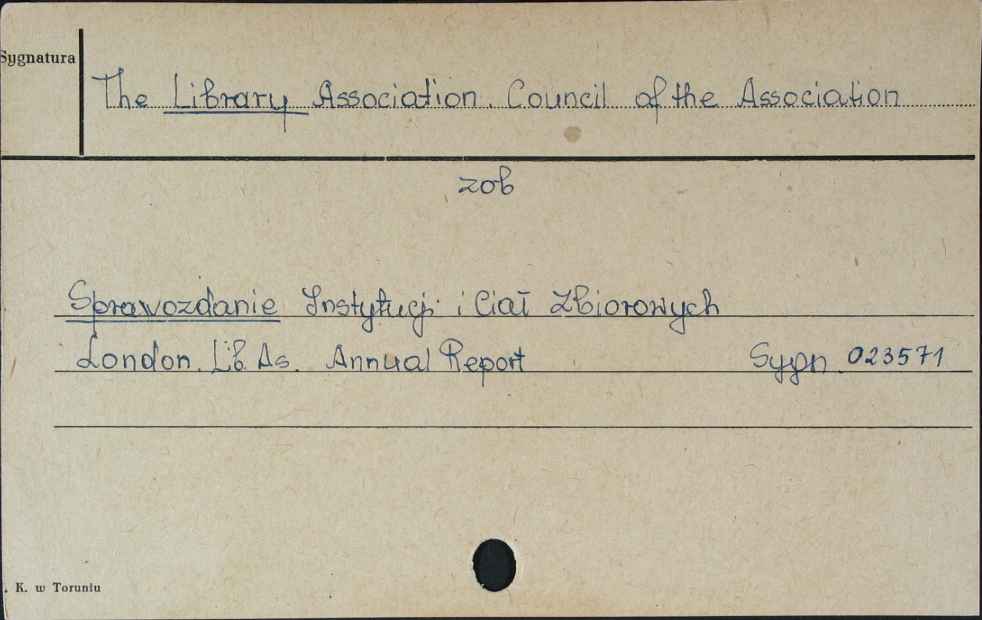 Sygnatura
The Library Association. Council of the Association
zob
Sprawozdanie Instytucji i Ciał Zbiorowych
London. Lib. As. Annual Report Sygn. 023571
. K. w Toruniu